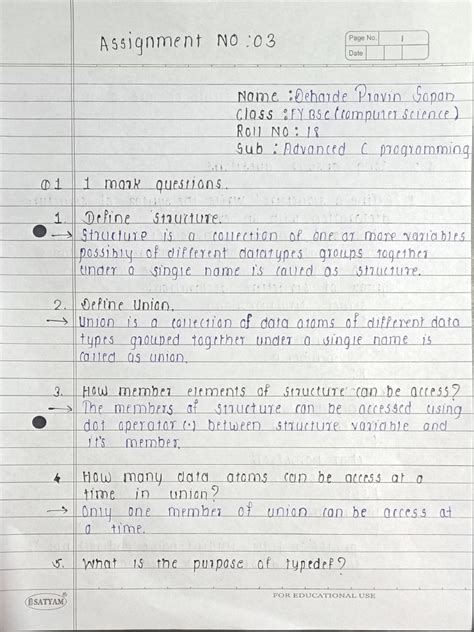 Assignment NO : 03
Page No. 1
Date
Name : Deharde Pravin Gopan
Class : FY BSc (computer science)
Roll NO : 18
Sub : Advanced C programming
Q1 1 mark questions.
1. Define structure.
→ Structure is a collection of one or more variables
possibly of different datatypes groups together
under a single name is called as structure.
2. Define Union.
→ Union is a collection of data atoms of different data
types grouped together under a single name is
called as union.
3. How member elements of structure can be access?
→ The members of structure can be accessed using
dot operator (·) between structure variable and
it's member.
4 How many data atoms can be access at a
time in union?
→ Only one member of union can be access at
a time.
5. What is the purpose of typedef?
SATYAM
FOR EDUCATIONAL USE